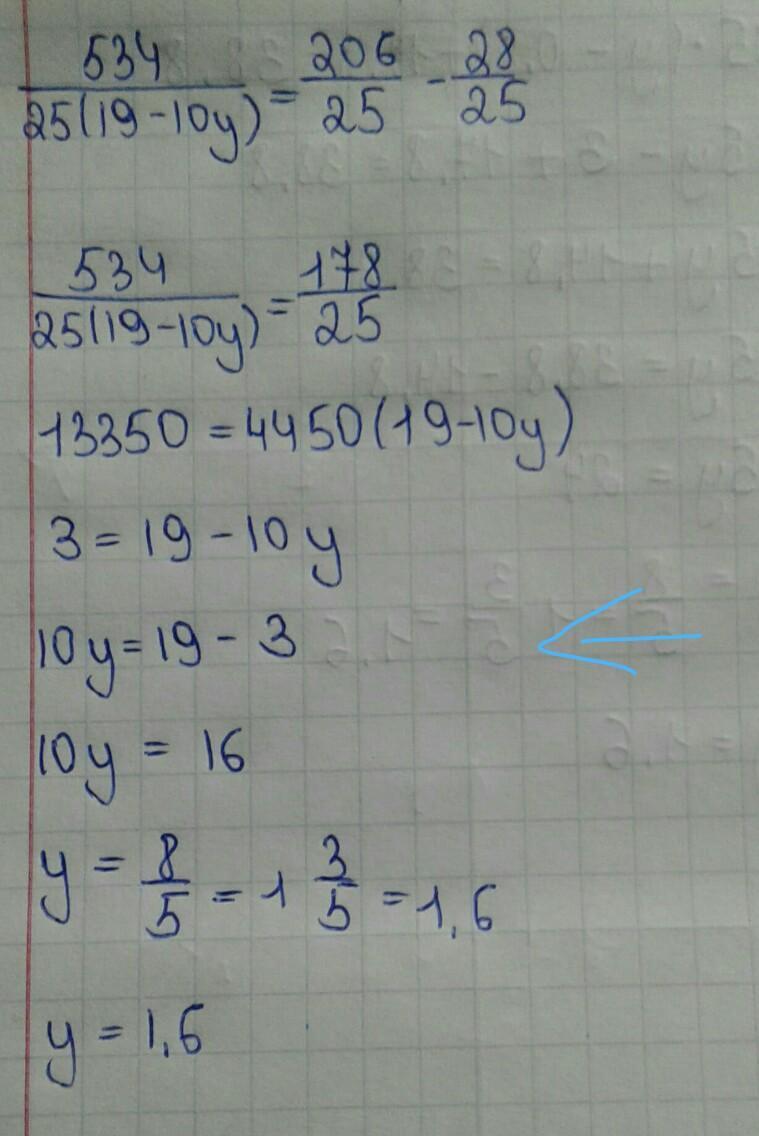 534/25(19-10y) = 206/25 - 28/25
534/25(19-10y) = 178/25
13350 = 4450(19-10y)
3 = 19 - 10y
10y = 19 - 3
10y = 16
y = 8/5 = 1 3/5 = 1,6
y = 1,6